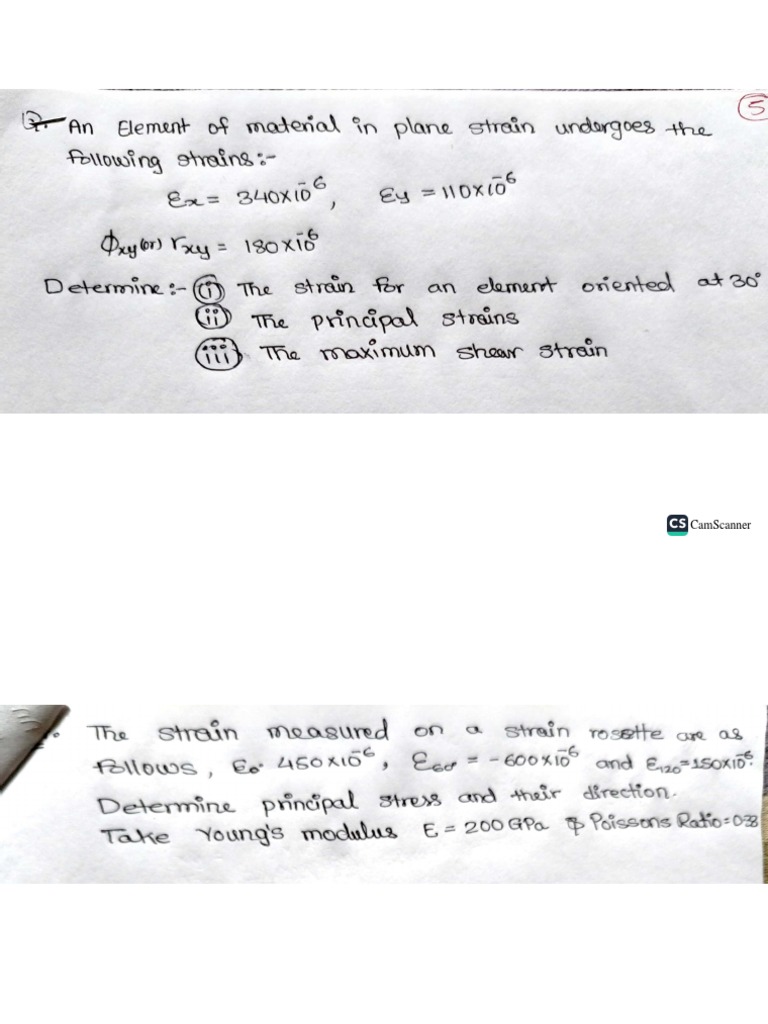 5
Q. An Element of material in plane strain undergoes the
following strains:-
εx = 340×10⁻⁶, εy = 110×10⁻⁶
ϕxy (or) rxy = 180×10⁻⁶
Determine:- (i) The strain for an element oriented at 30°
(ii) The principal strains
(iii) The maximum shear strain
CS CamScanner
The strain measured on a strain rosette are as
follows, ε0° 450×10⁻⁶, ε60° = -600×10⁻⁶ and ε120 = 150×10⁻⁶.
Determine principal stress and their direction.
Take Young's modulus E = 200 GPa & Poissons Ratio = 0.38